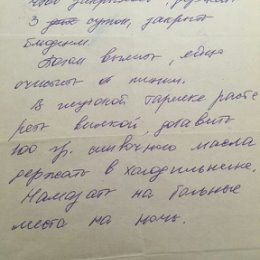 3 суток, закрыть
блюдцем.
Потом вылить, яйцо
очистить от пленки.
В глубокой тарелке расте
реть вилкой, добавить
100 гр. сливочного масла
держать в холодильнике.
Намазать на больные
места на ночь.